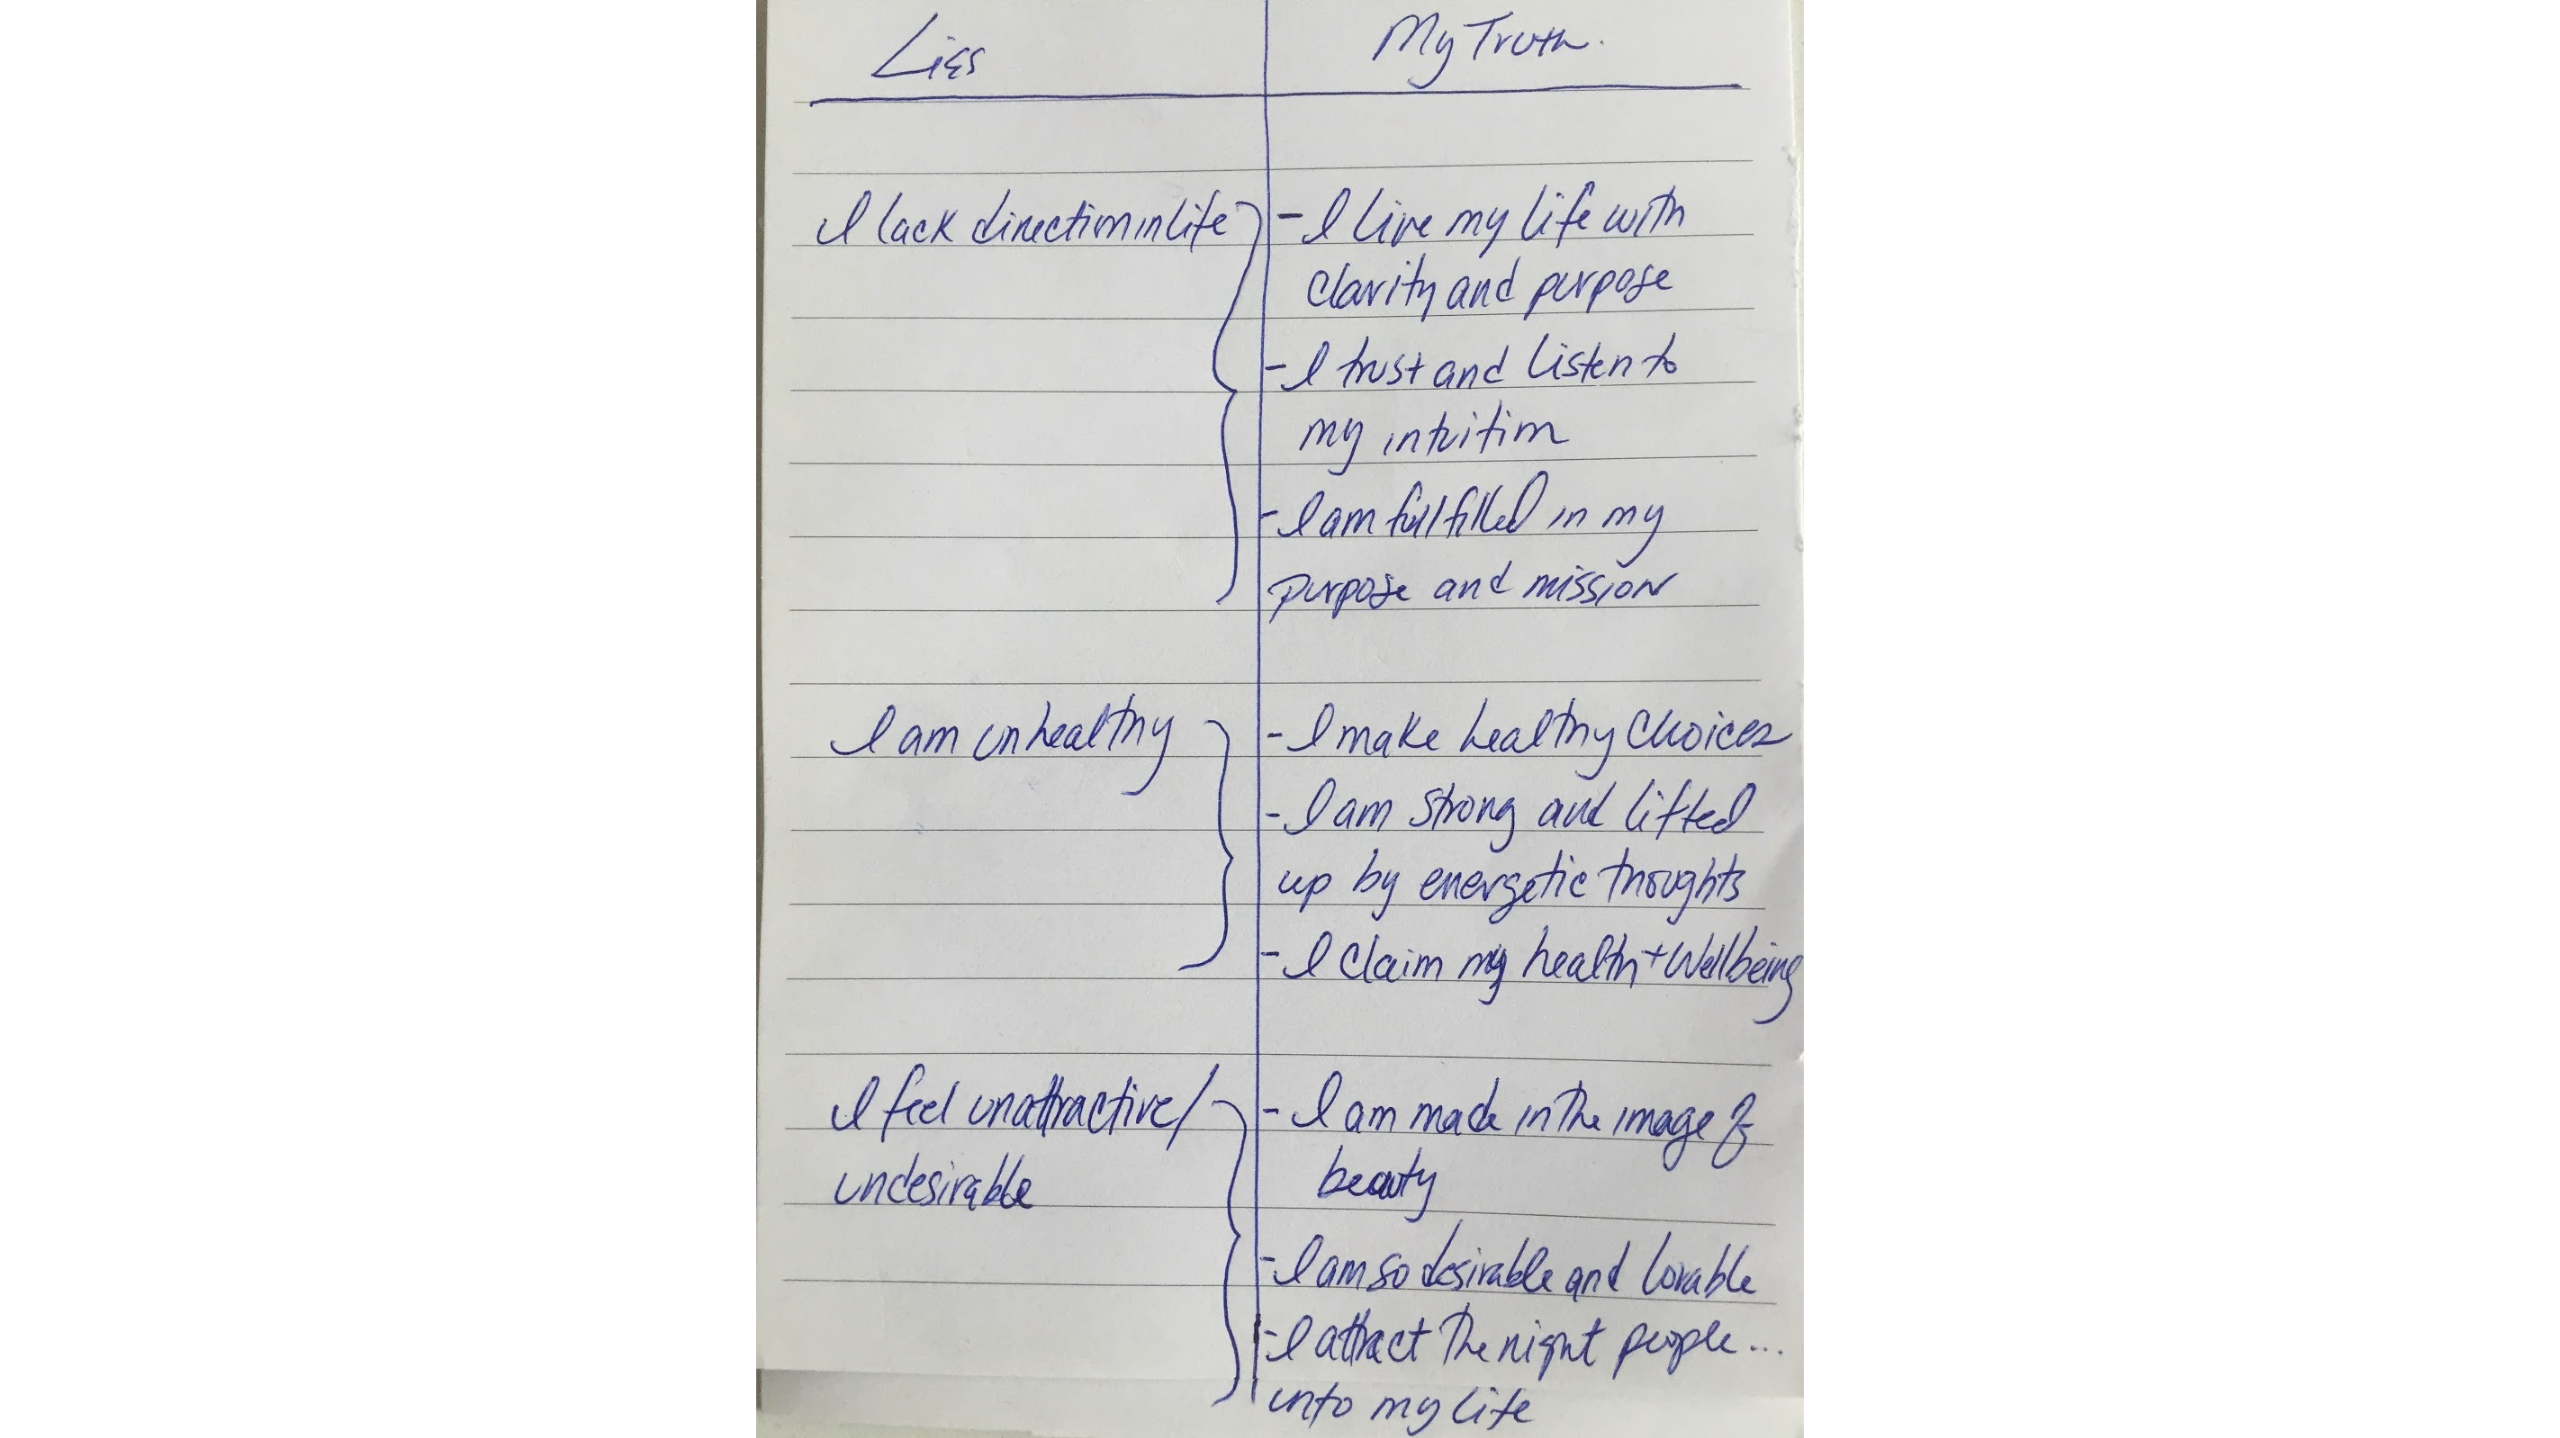 Lies
My Truth.
I lack direction in life
- I live my life with
clarity and purpose
- I trust and listen to
my intuition
- I am fullfilled in my
purpose and mission
I am unhealthy
- I make healthy choices
- I am strong and lifted
up by energetic thoughts
- I claim my health + wellbeing
I feel unattractive/
undesirable
- I am made in the image of
beauty
- I am so desirable and lovable
- I attract the right people...
unto my life